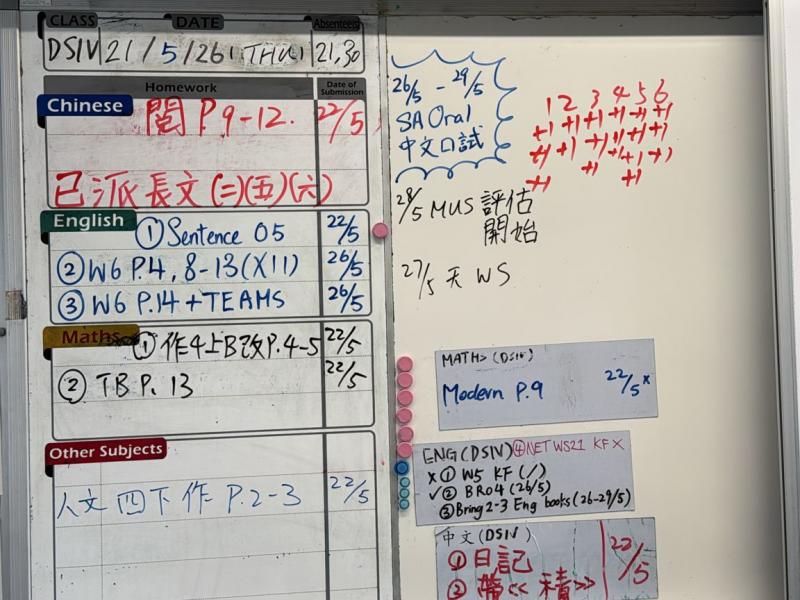 CLASS DATE Absentees
DSIV 21/5/26 (THU) 21,30
Homework Date of Submission
Chinese 閱 P.9-12. 22/5
已派長文(二)(五)(六)
English ① Sentence 05 22/5
② W6 P.4, 8-13(X11) 26/5
③ W6 P.14 + TEAMS 26/5
Maths ① 作4上B改P.4-5 22/5
② TB P. 13 22/5
Other Subjects
人文 四下 作 P.2-3 22/5
26/5 - 29/5
SA Oral
中文口試
1 2 3 4 5 6
+1 +1 +1 +1 +1 +1
28/5 MUS 評估
開始
27/5 天 WS
MATHS (DSIV)
Modern P.9 22/5 x
ENG (DSIV) ④NET WS21 KF X
x ① W5 KF (/)
✓② BR04 (26/5)
③ Bring 2-3 Eng books (26-29/5)
中文 (DSIV)
① 日記 22/5
② 帶<<積>>